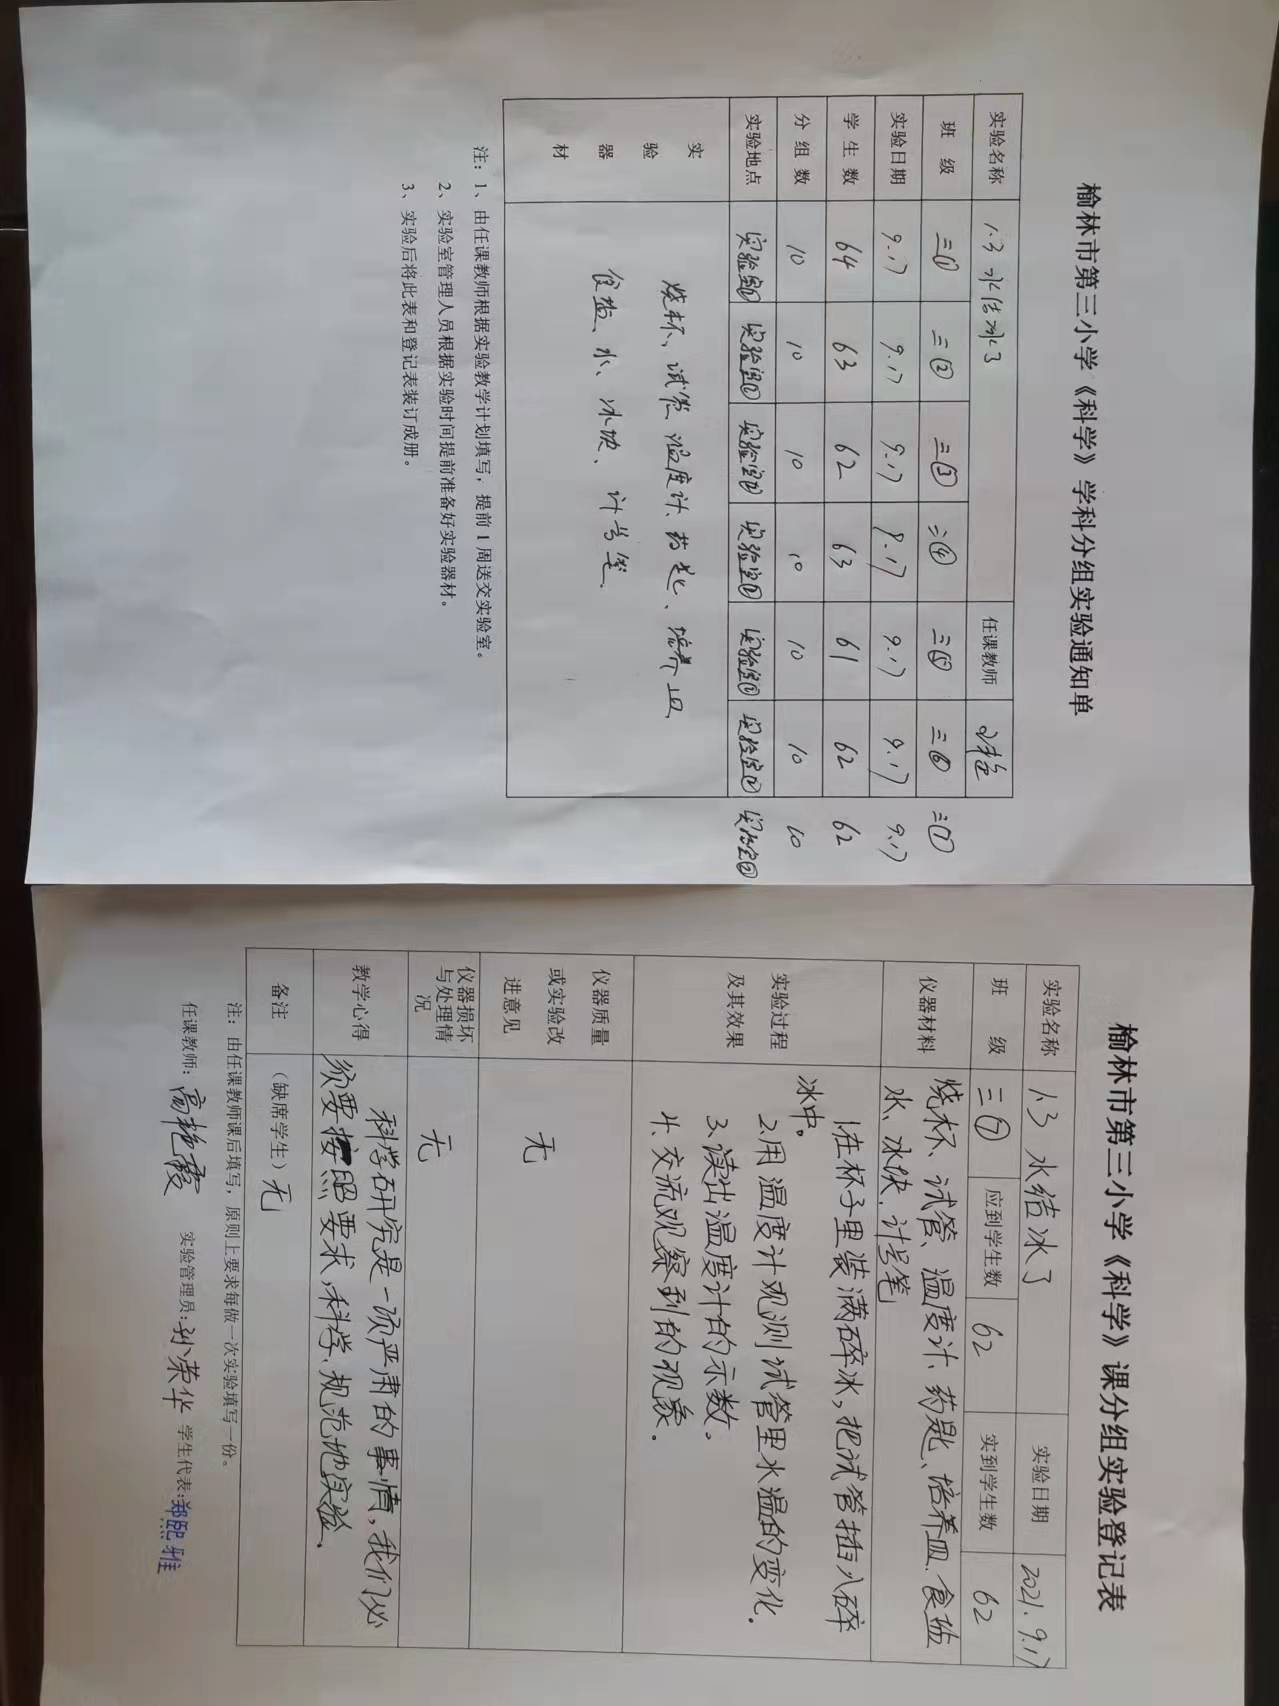 榆林市第三小学《科学》学科分组实验通知单
实验名称 1.3 水结冰了 任课教师
班 级 三① 三② 三③ 三④ 三⑤ 三⑥ 三⑦
实验日期 9.17 9.17 9.17 9.17 9.17 9.17 9.17
学生数 64 63 62 63 61 62 62
分组数 10 10 10 10 10 10 10
实验地点 实验室② 实验室② 实验室② 实验室② 实验室② 实验室② 实验室②
实验器材
烧杯、试管、温度计、药匙、培养皿
食盐、水、冰块、计号笔
注:1、由任课教师根据实验教学计划填写,提前1周送交实验室。
2、实验室管理人员根据实验时间提前准备好实验器材。
3、实验后将此表和登记表装订成册。
榆林市第三小学《科学》课分组实验登记表
实验名称 1.3 水结冰了 实验日期 2021.9.17
班 级 三⑦ 应到学生数 62 实到学生数 62
仪器材料
烧杯、试管、温度计、药匙、培养皿、食盐
水、冰块、计号笔
实验过程
及其效果
1.在杯子里装满碎冰,把试管插入碎
冰中。
2.用温度计观测试管里水温的变化.
3.读出温度计的示数。
4.交流观察到的现象.
仪器质量
或实验改
进意见
无
仪器损坏
与处理情
况
无
教学心得
科学研究是一项严肃的事情,我们必
须要按照要求,科学、规范地实验.
备注 (缺席学生)无
注:由任课教师课后填写,原则上要求每做一次实验填写一份。
任课教师:高艳霞 实验管理员:孙荣华 学生代表:郑熙雅